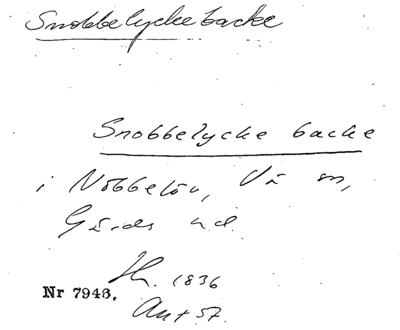 Snobbelyckebacke
Snobbelycke backe
i Nöbbelöv, Vä sn,
Gärds hd.
1836
Nr 7943.